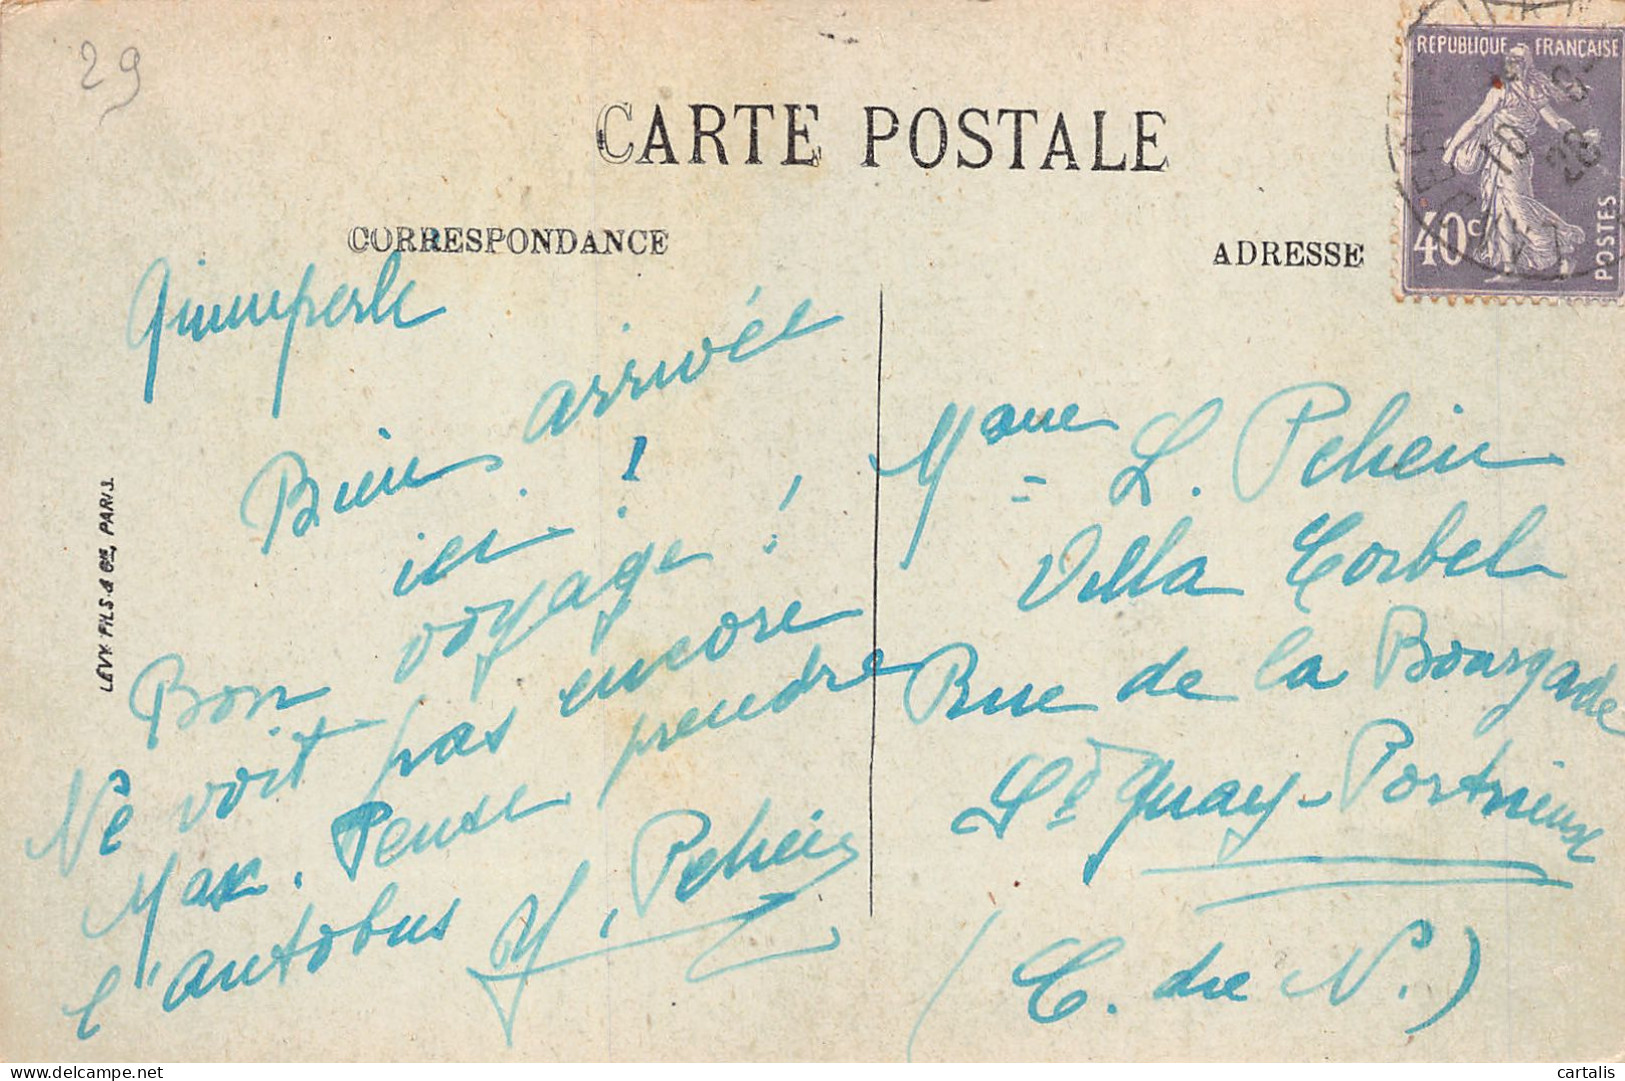 29
CARTE POSTALE
CORRESPONDANCE
ADRESSE
REPUBLIQUE FRANÇAISE
40c
POSTES
10
28
Quimperlé
Bien arrivée
ici !
Bon voyage !
Ne voit pas encore
Max. Pense prendre
l'autobus
Y. Pehein
LÉVY FILS & Cie, PARIS
Mme L. Pehein
Villa Corbel
Rue de la Bourgade
St Quay-Portrieux
(C. du N.)
delcampe.net
cartalis